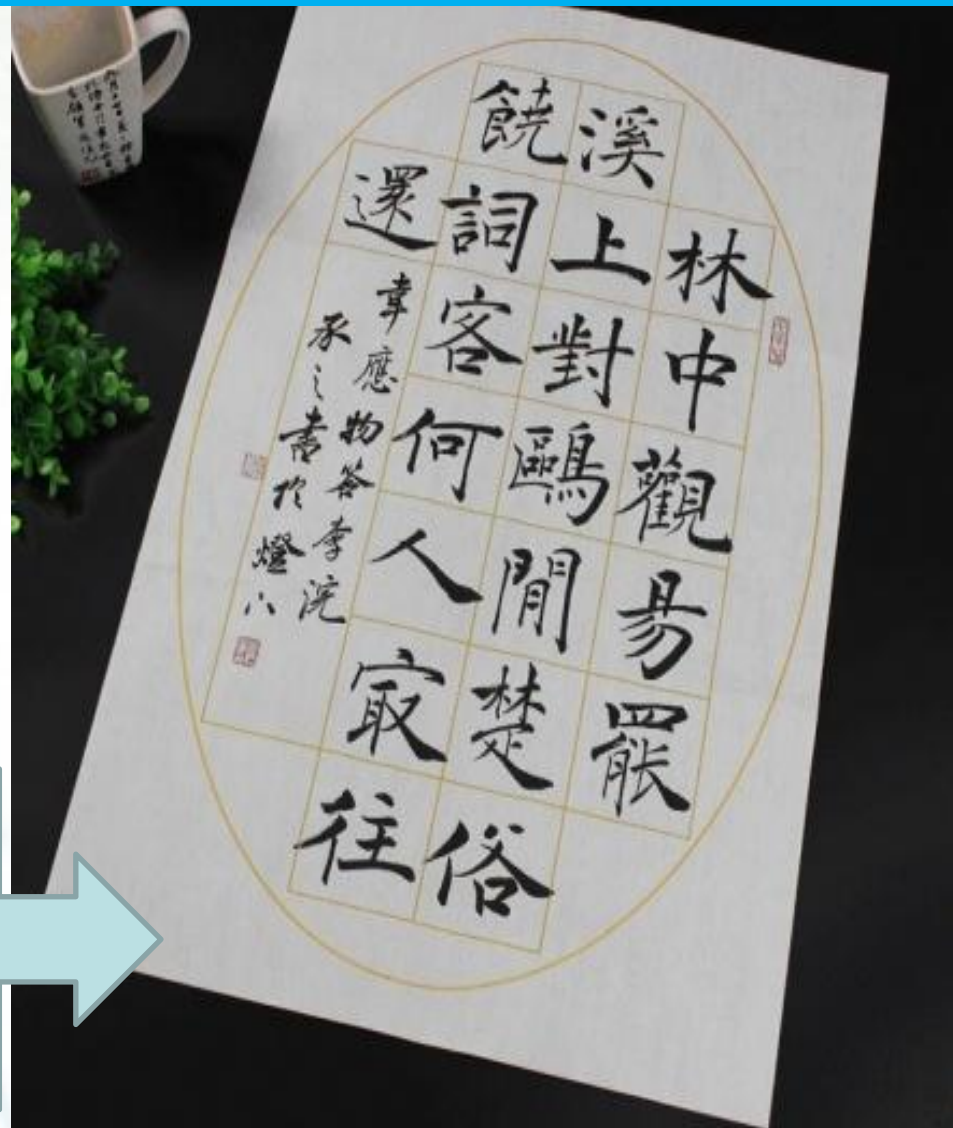 林中觀易罷
溪上對鷗閒楚俗
饒詞客何人㝡往
還
韋應物答李浣
承之書於燈下